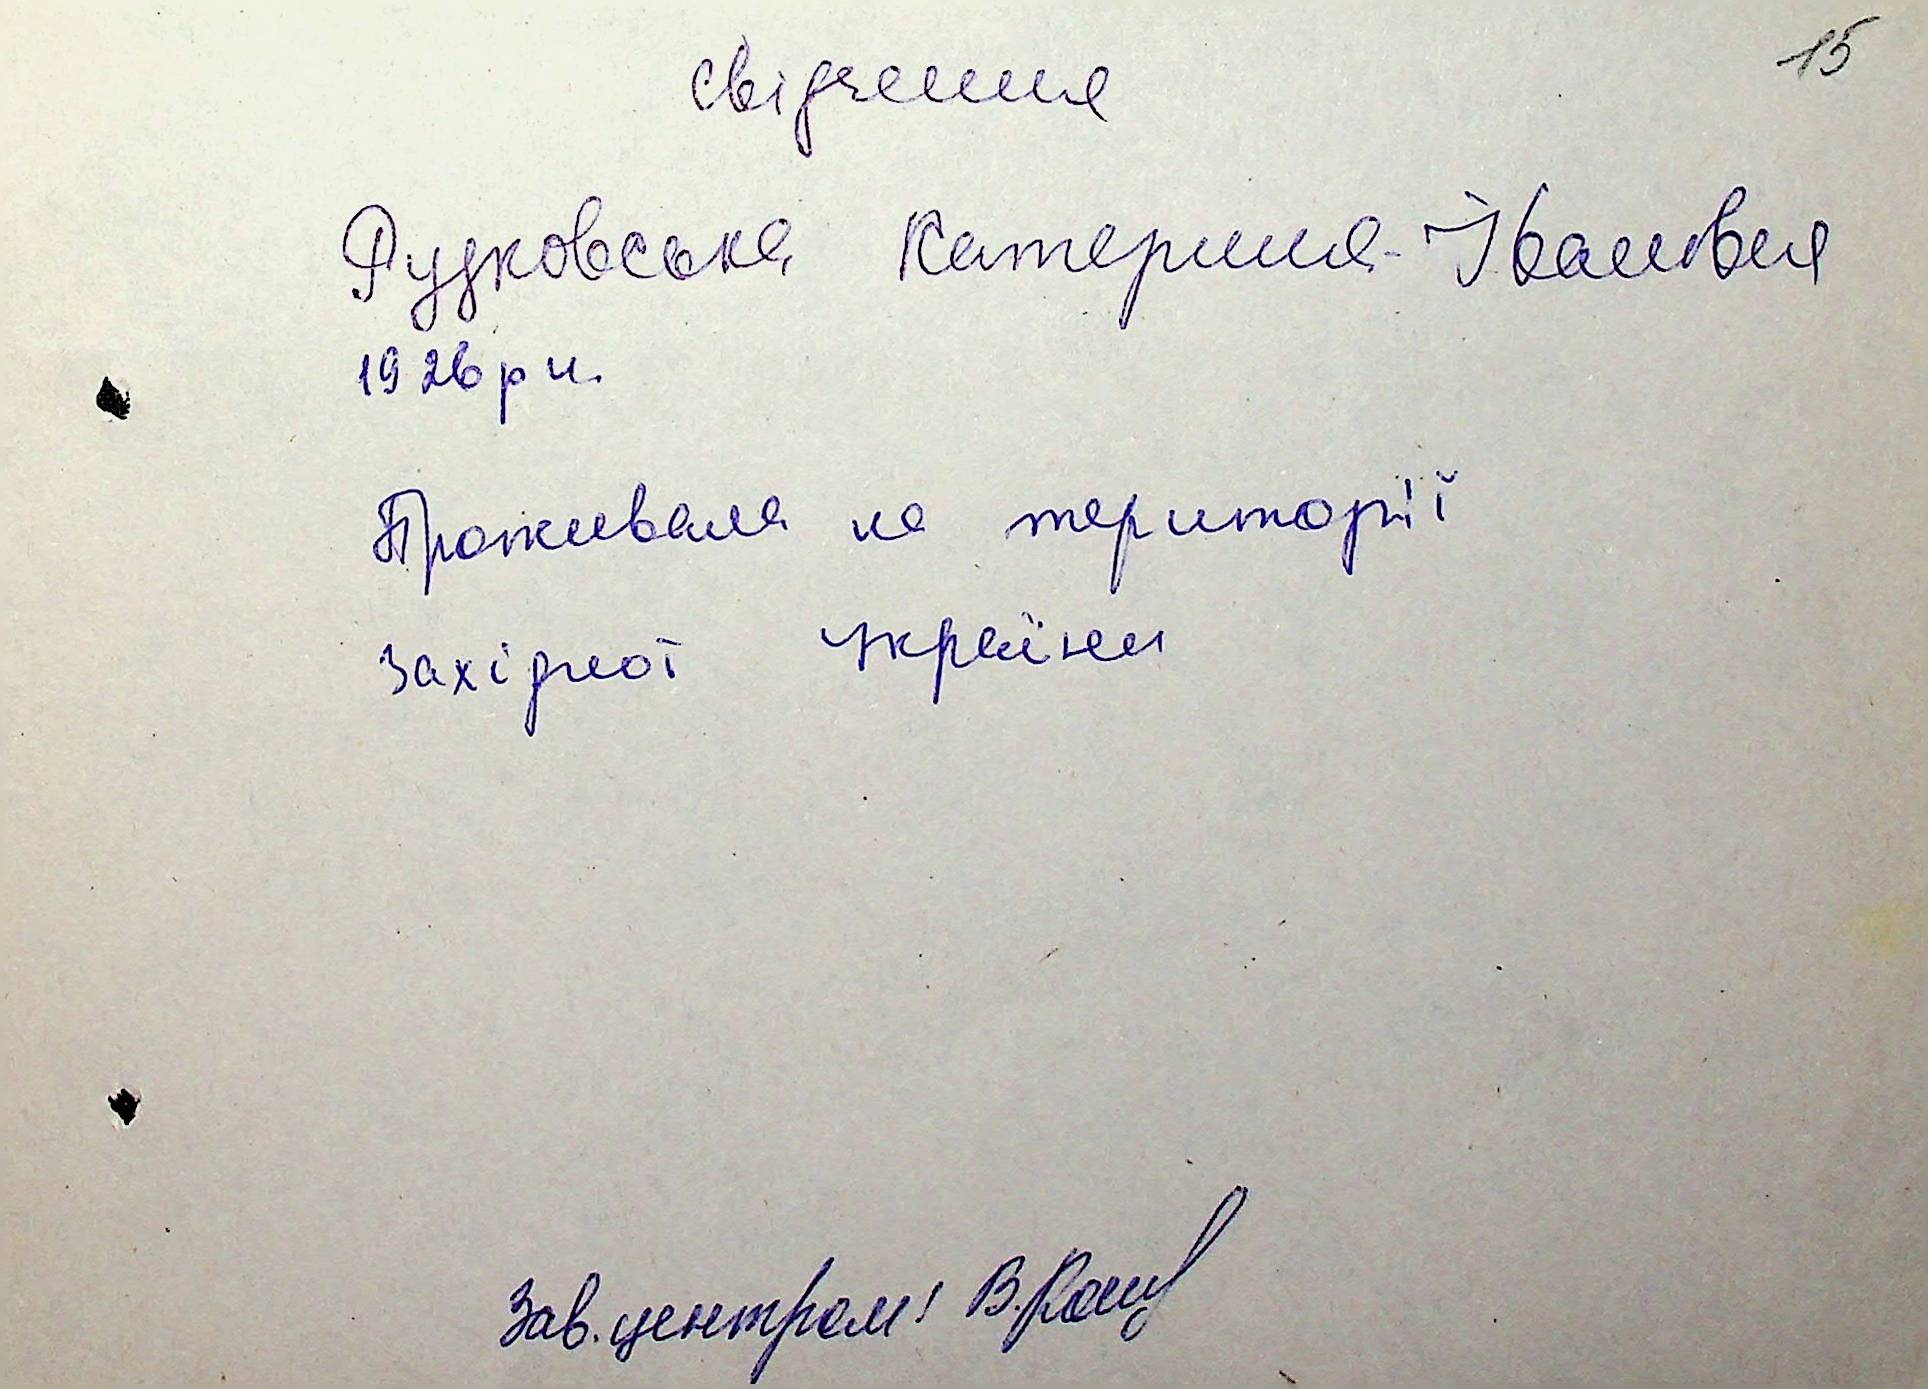 15
свідчення
Рудковська Катерина Іванівна
1926 р н.
Проживала на території
Західної України
Зав. центром: В.